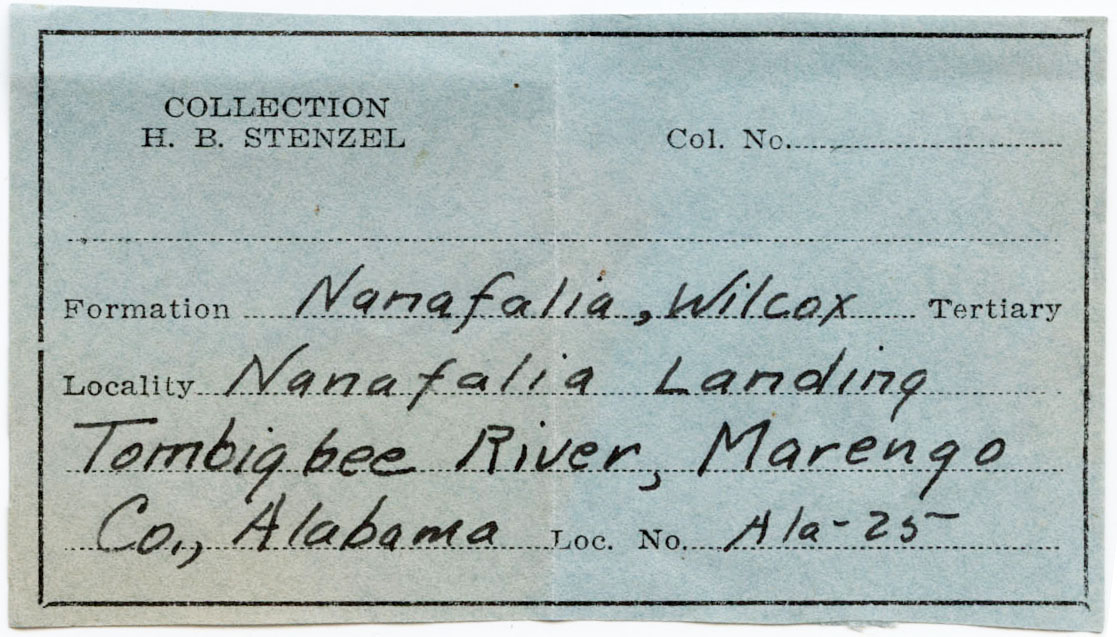 COLLECTION
H. B. STENZEL
Col. No.
Formation Nanafalia, Wilcox Tertiary
Locality Nanafalia Landing
Tombigbee River, Marengo
Co., Alabama Loc. No. Ala-25